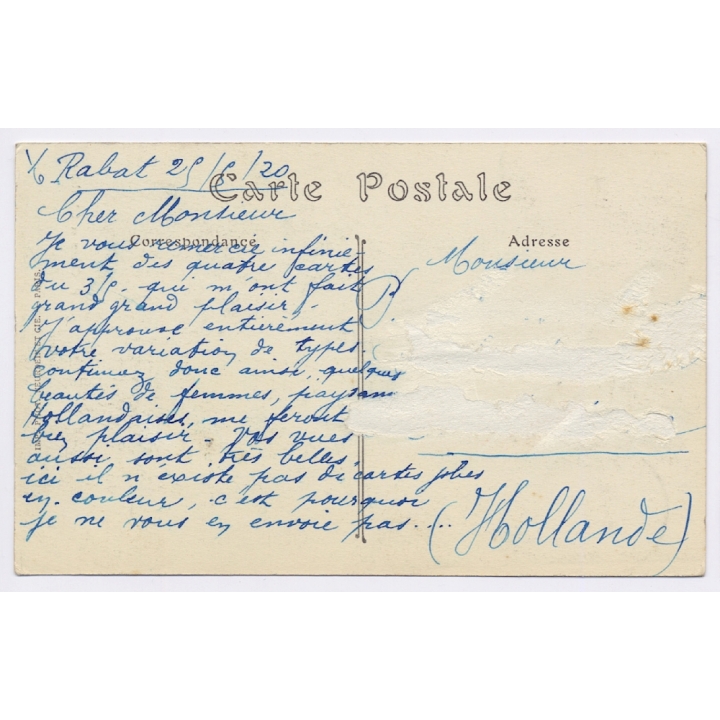 Rabat 25/5/20
Carte Postale
Cher Monsieur
Correspondance
Je vous remercie infinie-
ment des quatre cartes
du 3/5. qui m'ont fait
grand grand plaisir.
J'approuve entièrement
votre variation de types
continuez donc ainsi, quelques
beautés de femmes, paysans
Hollandaises, me feront
bien plaisir. Vos vues
aussi sont très belles,
ici il n'existe pas de cartes jolies
en couleur, c'est pourquoi
je ne vous en envoie pas....
Adresse
Monsieur
P.
(Hollande)